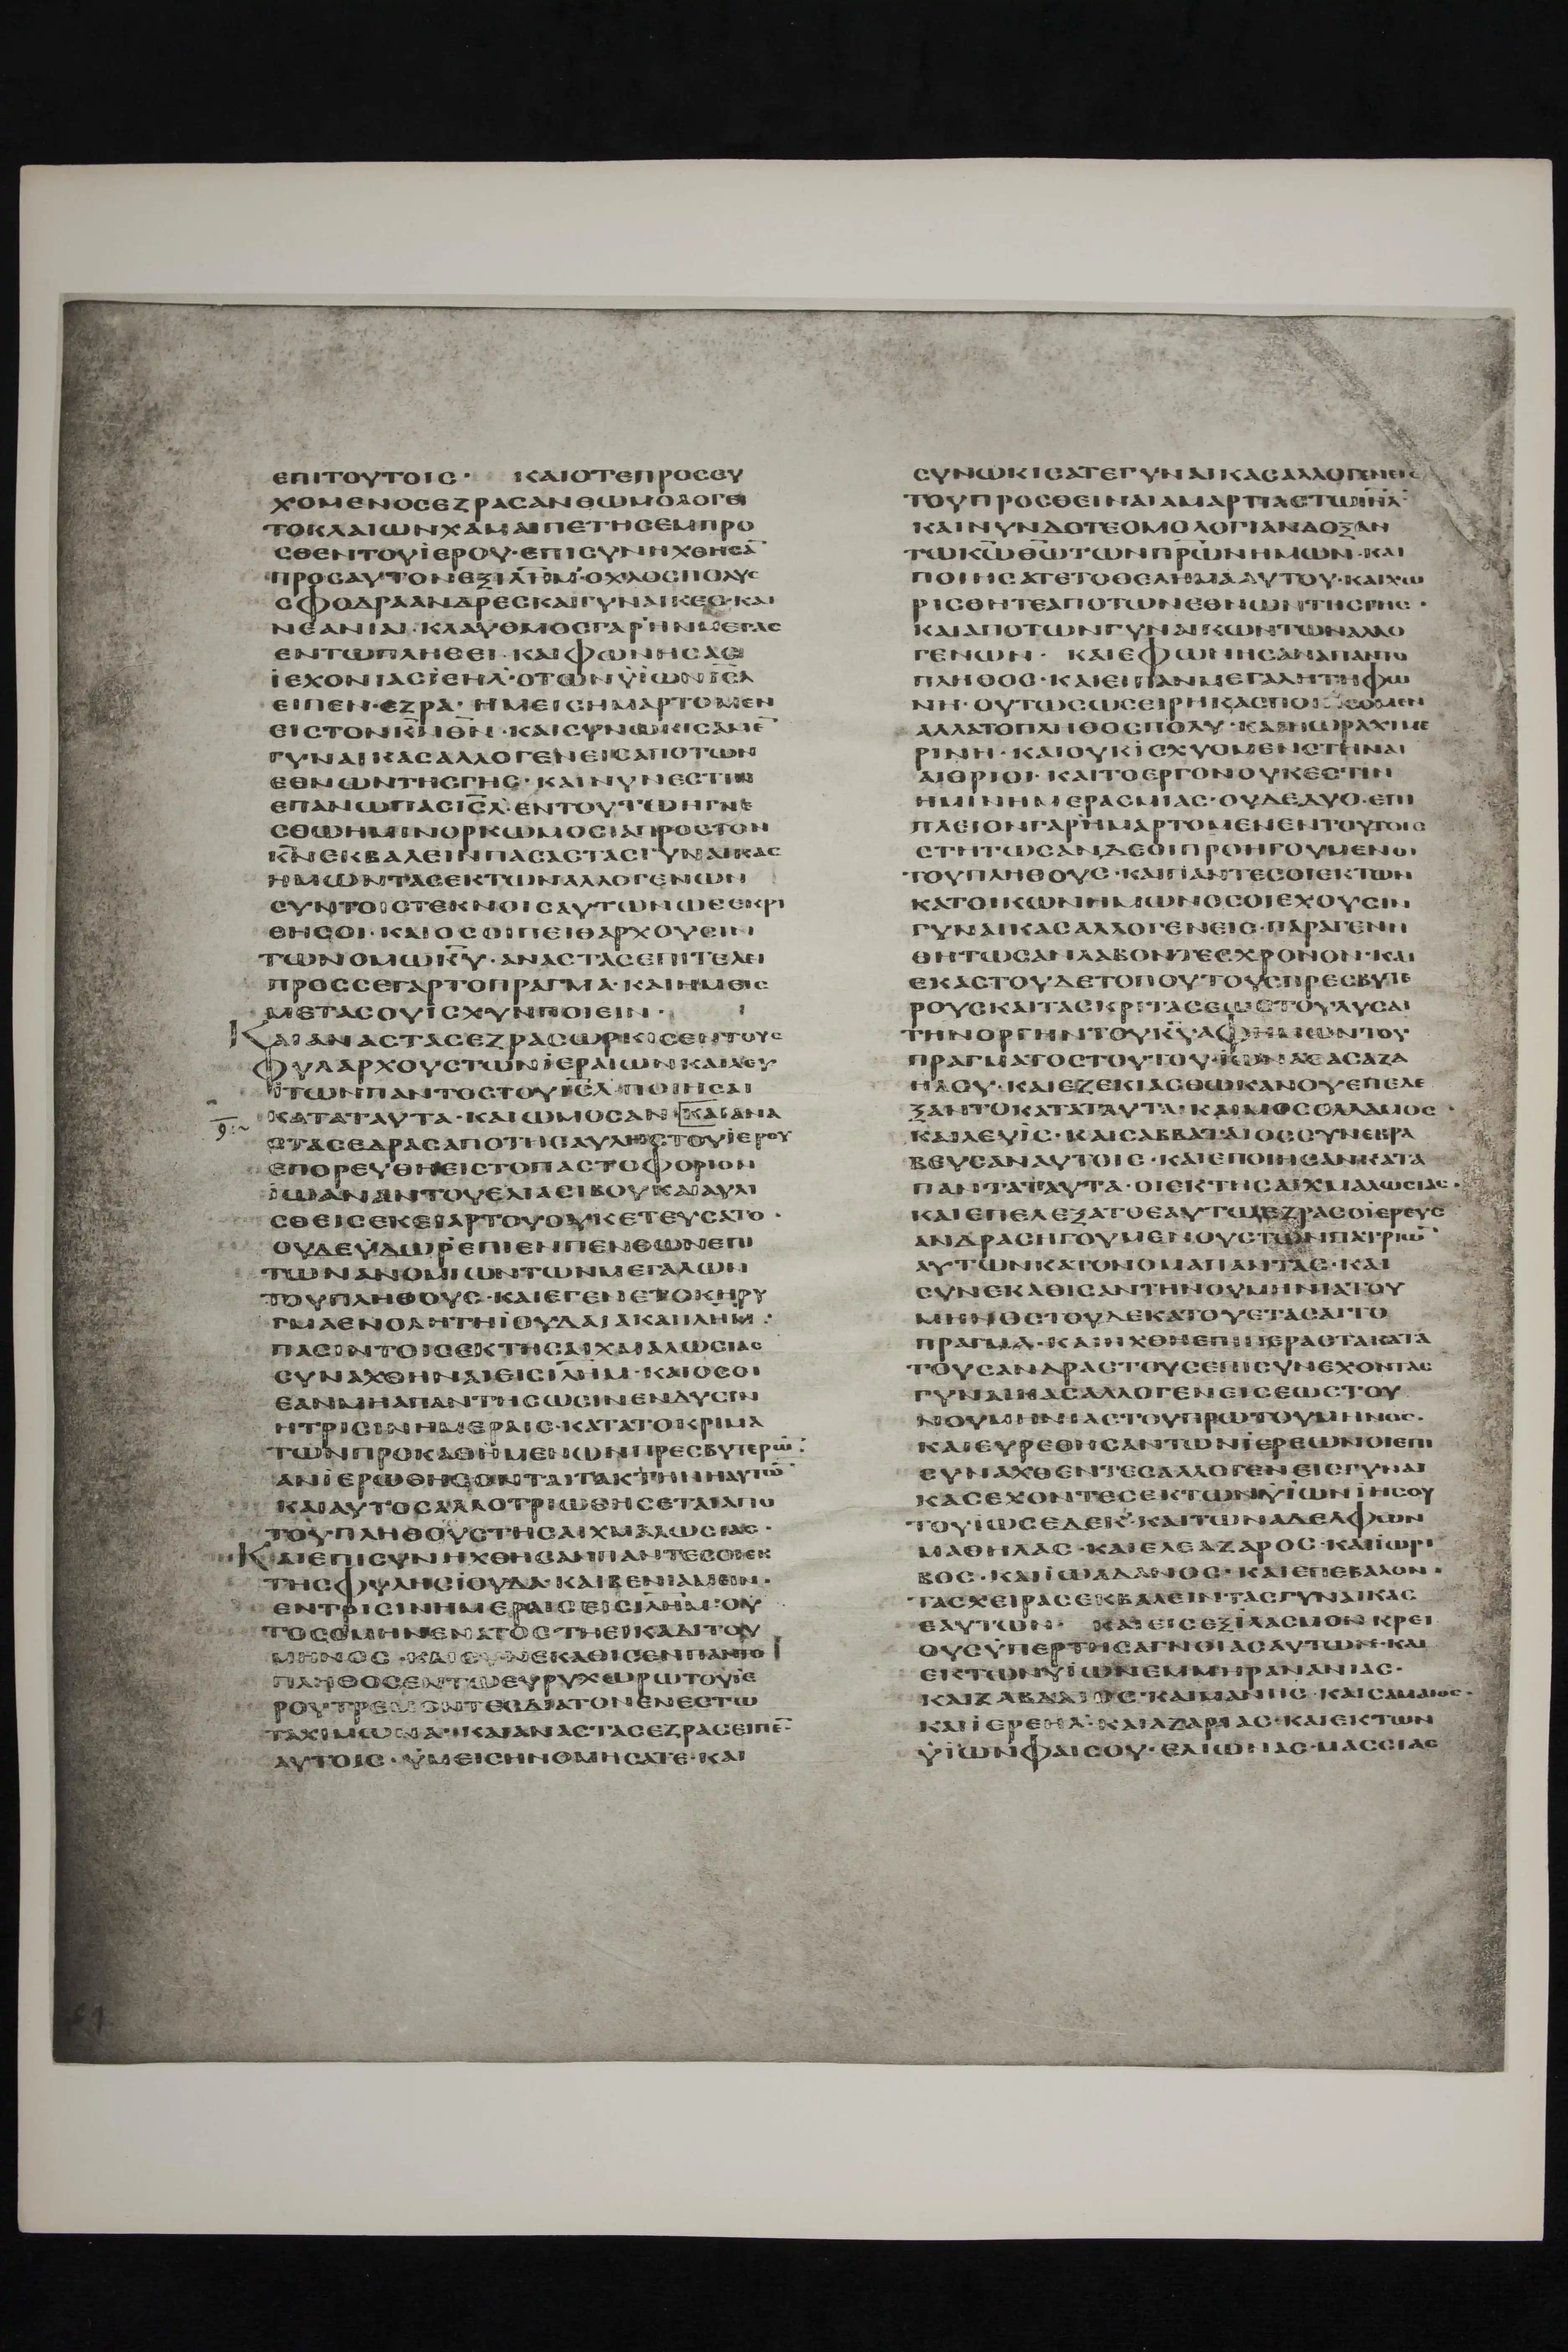 ΕΠΙΤΟΥΤΟΙС· ΚΑΙΟΤΕΠΡΟСΕΥ
ΧΟΜΕΝΟСΕΖΡΑСΑΝΘΩΜΟΛΟΓΕΙ
ΤΟΚΛΑΙΩΝΧΑΜΑΙΠΕΤΗСΕΜΠΡΟ
СΘΕΝΤΟΥΪΕΡΟΥ·ΕΠΙСΥΝΗΧΘΗСΑ̅
ΠΡΟСΑΥΤΟΝΕΞΙΛ̅Η̅Μ̅·ΟΧΛΟСΠΟΛΥС
СΦΟΔΡΑΑΝΔΡΕСΚΑΙΓΥΝΑΙΚΕС·ΚΑΙ
ΝΕΑΝΙΑΙ·ΚΛΑΥΘΜΟСΓΑΡΗΝΜΕΓΑС
ΕΝΤΩΠΛΗΘΕΙ·ΚΑΙΦΩΝΗСΑС
ΪΕΧΟΝΙΑСΪΕΗΛ·ΟΤΩΝΫΙΩΝΙ̅С̅Λ̅
ΕΙΠΕΝ·ΕΖΡΑ·ΗΜΕΙСΗΜΑΡΤΟΜΕΝ
ΕΙСΤΟΝΚ̅Ν̅Θ̅Ν̅·ΚΑΙСΥΝΩΚΙСΑΜΕ̅
ΓΥΝΑΙΚΑСΑΛΛΟΓΕΝΕΙСΑΠΟΤΩΝ
ΕΘΝΩΝΤΗСΓΗС·ΚΑΙΝΥΝΕСΤΙΝ
ΕΠΑΝΩΠΑСΙ̅С̅Λ̅·ΕΝΤΟΥΤΩΗΓΝΕ
СΘΩΗΜΙΝΟΡΚΩΜΟСΙΑΠΡΟСΤΟΝ
Κ̅Ν̅ΕΚΒΑΛΕΙΝΠΑСΑСΤΑСΓΥΝΑΙΚΑС
ΗΜΩΝΤΑСΕΚΤΩΝΑΛΛΟΓΕΝΩΝ
СΥΝΤΟΙСΤΕΚΝΟΙСΑΥΤΩΝΩСΕΚΡΙ
ΘΗСΟΙ·ΚΑΙΟСΟΙΠΕΙΘΑΡΧΟΥСΙΝ
ΤΩΝΟΜΩΚ̅Υ̅·ΑΝΑСΤΑСΕΠΙΤΕΛΕΙ
ΠΡΟССΕΓΑΡΤΟΠΡΑΓΜΑ·ΚΑΙΗΜΕΙС
ΜΕΤΑСΟΥΪСΧΥΝΠΟΙΕΙΝ·
ΚΑΙΑΝΑСΤΑСΕΖΡΑСΩΡΚΙСΕΝΤΟΥС
ΦΥΛΑΡΧΟΥСΤΩΝΪΕΡΑΙΩΝΚΑΙΛΕΥ
ΙΤΩΝΠΑΝΤΟСΤΟΥΙ̅С̅Λ̅·ΠΟΙΗСΑΙ
ΚΑΤΑΤΑΥΤΑ·ΚΑΙΩΜΟСΑΝ·ΚΑΙΑΝΑ
СΤΑСΕΔΡΑСΑΠΟΤΗСΑΥΛΗСΤΟΥΪΕΡΟΥ
ΕΠΟΡΕΥΘΗΕΙСΤΟΠΑСΤΟΦΟΡΙΟΝ
ΪΩΑΝΑΝΤΟΥΕΛΙΑСΙΒΟΥΚΑΙΑΥΛΙ
СΘΕΙСΕΚΕΙΑΡΤΟΥΟΥΚΕΓΕΥСΑΤΟ·
ΟΥΔΕΫΔΩΡΕΠΙΕΝΠΕΝΘΩΝΕΠΙ
ΤΩΝΑΝΟΜΙΩΝΤΩΝΜΕΓΑΛΩΝ
ΤΟΥΠΛΗΘΟΥС·ΚΑΙΕΓΕΝΕΤΟΚΗΡΥ
ΓΜΑΕΝΟΛΗΤΗΪΟΥΔΑΙΑΚΑΙΙΛ̅Η̅Μ̅:
ΠΑСΙΝΤΟΙСΕΚΤΗСΑΙΧΜΑΛΩСΙΑС
СΥΝΑΧΘΗΝΑΙΕΙСΙΛ̅Η̅Μ̅·ΚΑΙΟСΟΙ
ΕΑΝΜΗΑΠΑΝΤΗСΩСΙΝΕΝΔΥСΙΝ
ΗΤΡΙСΙΝΗΜΕΡΑΙС·ΚΑΤΑΤΟΚΡΙΜΑ
ΤΩΝΠΡΟΚΑΘΗΜΕΝΩΝΠΡΕСΒΥΤΕΡΩ̅:
ΑΝΙΕΡΩΘΗСΟΝΤΑΙΤΑΚΤΗΝΗΑΥΤΩ̅
ΚΑΙΑΥΤΟСΑΛΛΟΤΡΙΩΘΗСΕΤΑΙΑΠΟ
ΤΟΥΠΛΗΘΟΥСΤΗСΑΙΧΜΑΛΩСΙΑС·
ΚΑΙΕΠΙСΥΝΗΧΘΗСΑΝΠΑΝΤΕСΟΙΕΚ
ΤΗСΦΥΛΗСΪΟΥΔΑ·ΚΑΙΒΕΝΙΑΜΕΙΝ·
ΕΝΤΡΙСΙΝΗΜΕΡΑΙСΕΙСΙΛ̅Η̅Μ̅·ΟΥ
ΤΟСΟΜΗΝΕΝΑΤΟСΤΗΕΙΚΑΔΙΤΟΥ
ΜΗΝΟС·ΚΑΙСΥΝΕΚΑΘΙСΕΝΠΑΝΤΟ
ΠΛΗΘΟСΕΝΤΩΕΥΡΥΧΩΡΩΤΟΥΪΕ
ΡΟΥΤΡΕΜΟΝΤΕСΔΙΑΤΟΝΕΝΕСΤΩ
ΤΑΧΙΜΩΝΑ·ΚΑΙΑΝΑСΤΑСΕΖΡΑСΕΙΠΕ̅
ΑΥΤΟΙС·ΫΜΕΙСΗΝΟΜΗСΑΤΕ·ΚΑΙ
СΥΝΩΚΙСΑΤΕΓΥΝΑΙΚΑСΑΛΛΟΓΕΝΕΙС
ΤΟΥΠΡΟСΘΕΙΝΑΙΑΜΑΡΤΙΑСΤΩΙ̅Η̅Λ̅·
ΚΑΙΝΥΝΔΟΤΕΟΜΟΛΟΓΙΑΝΔΟΞΑΝ
ΤΩΚ̅Ω̅Θ̅Ω̅ΤΩΝΠ̅Ρ̅Ω̅Ν̅ΗΜΩΝ·ΚΑΙ
ΠΟΙΗСΑΤΕΤΟΘΕΛΗΜΑΑΥΤΟΥ·ΚΑΙΧΩ
ΡΙСΘΗΤΕΑΠΟΤΩΝΕΘΝΩΝΤΗСΓΗС·
ΚΑΙΑΠΟΤΩΝΓΥΝΑΙΚΩΝΤΩΝΑΛΛΟ
ΓΕΝΩΝ· ΚΑΙΕΦΩΝΗСΑΝΑΠΑΝΤΟ
ΠΛΗΘΟС·ΚΑΙΕΙΠΑΝΜΕΓΑΛΗΤΗΦΩ
ΝΗ·ΟΥΤΩСΩСΕΙΡΗΚΑСΠΟΙΗСΟΜΕΝ
ΑΛΛΑΤΟΠΛΗΘΟСΠΟΛΥ·ΚΑΙΗΩΡΑΧΙΜΕ
ΡΙΝΗ·ΚΑΙΟΥΚΪСΧΥΟΜΕΝСΤΗΝΑΙ
ΑΙΘΡΙΟΙ·ΚΑΙΤΟΕΡΓΟΝΟΥΚΕСΤΙΝ
ΗΜΙΝΗΜΕΡΑСΜΙΑС·ΟΥΔΕΔΥΟ·ΕΠΙ
ΠΛΕΙΟΝΓΑΡΗΜΑΡΤΟΜΕΝΕΝΤΟΥΤΟΙС
СΤΗΤΩСΑΝΔΕΟΙΠΡΟΗΓΟΥΜΕΝΟΙ
ΤΟΥΠΛΗΘΟΥС·ΚΑΙΠΑΝΤΕСΟΙΕΚΤΩΝ
ΚΑΤΟΙΚΩΝΗΜΩΝΟСΟΙΕΧΟΥСΙΝ
ΓΥΝΑΙΚΑСΑΛΛΟΓΕΝΕΙС·ΠΑΡΑΓΕΝΗ
ΘΗΤΩСΑΝΛΑΒΟΝΤΕСΧΡΟΝΟΝ·ΚΑΙ
ΕΚΑСΤΟΥΔΕΤΟΠΟΥΤΟΥСΠΡΕСΒΥΤΕ
ΡΟΥСΚΑΙΤΑСΚΡΙΤΑСΕΩСΤΟΥΛΥСΑΙ
ΤΗΝΟΡΓΗΝΤΟΥΚ̅Υ̅ΑΦΗΜΩΝΤΟΥ
ΠΡΑΓΜΑΤΟСΤΟΥΤΟΥ·ΪΩΝΑΣΑСΑΖΑ
ΗΛΟΥ·ΚΑΙΕΖΕΚΙΑСΘΩΚΑΝΟΥΕΠΕΔΕ
ΞΑΝΤΟΚΑΤΑΤΑΥΤΑ·ΚΑΙΜΟСΟΛΛΑΜΟС·
ΚΑΙΛΕΥΙС·ΚΑΙСΑΒΒΑΤΑΙΟССΥΝΕΒΡΑ
ΒΕΥСΑΝΑΥΤΟΙС·ΚΑΙΕΠΟΙΗСΑΝΚΑΤΑ
ΠΑΝΤΑΤΑΥΤΑ·ΟΙΕΚΤΗСΑΙΧΜΑΛΩСΙΑС·
ΚΑΙΕΠΕΛΕΞΑΤΟΕΑΥΤΩΕΖΡΑСΟΪΕΡΕΥС
ΑΝΔΡΑСΗΓΟΥΜΕΝΟΥСΤΩΝΠΑΤΡΙΩ̅
ΑΥΤΩΝΚΑΤΟΝΟΜΑΠΑΝΤΑС·ΚΑΙ
СΥΝΕΚΑΘΙСΑΝΤΗΝΟΥΜΗΝΙΑΤΟΥ
ΜΗΝΟСΤΟΥΔΕΚΑΤΟΥΕΤΑСΑΙΤΟ
ΠΡΑΓΜΑ·ΚΑΙΗΧΘΗΕΠΙΠΕΡΑСΤΑΚΑΤΑ
ΤΟΥСΑΝΔΡΑСΤΟΥСΕΠΙСΥΝΕΧΟΝΤΑС
ΓΥΝΑΙΚΑСΑΛΛΟΓΕΝΕΙСΕΩСΤΟΥ
ΝΟΥΜΗΝΙΑСΤΟΥΠΡΩΤΟΥΜΗΝΟС·
ΚΑΙΕΥΡΕΘΗСΑΝΤΩΝΪΕΡΕΩΝΟΙΕΠΙ
СΥΝΑΧΘΕΝΤΕСΑΛΛΟΓΕΝΕΙСΓΥΝΑΙ
ΚΑСΕΧΟΝΤΕСΕΚΤΩΝΫΙΩΝΪΗСΟΥ
ΤΟΥΪΩСΕΔΕΚ·ΚΑΙΤΩΝΑΔΕΛΦΩΝ
ΜΑΘΗΛΑС·ΚΑΙΕΛΕΑΖΑΡΟС·ΚΑΙΪΩΡΙ
ΒΟС·ΚΑΙΪΩΑΔΑΝΟС·ΚΑΙΕΠΕΒΑΛΟΝ·
ΤΑСΧΕΙΡΑСΕΚΒΑΛΕΙΝΤΑСΓΥΝΑΙΚΑС
ΕΑΥΤΩΝ· ΚΑΙΕΙСΕΞΙΛΑСΜΟΝΚΡΕΙ
ΟΥСΫΠΕΡΤΗСΑΓΝΟΙΑСΑΥΤΩΝ·ΚΑΙ
ΕΚΤΩΝΫΙΩΝΕΜΜΗΡΑΝΑΝΙΑС·
ΚΑΙΖΑΒΔΑΙΟС·ΚΑΙΜΑΝΗС·ΚΑΙСΑΜΑΙΟС·
ΚΑΙΪΕΡΕΗΛ·ΚΑΙΑΖΑΡΙΑС·ΚΑΙΕΚΤΩΝ
ΫΙΩΝΦΑΙСΟΥ·ΕΛΙΩΝΑС·ΜΑССΙΑС